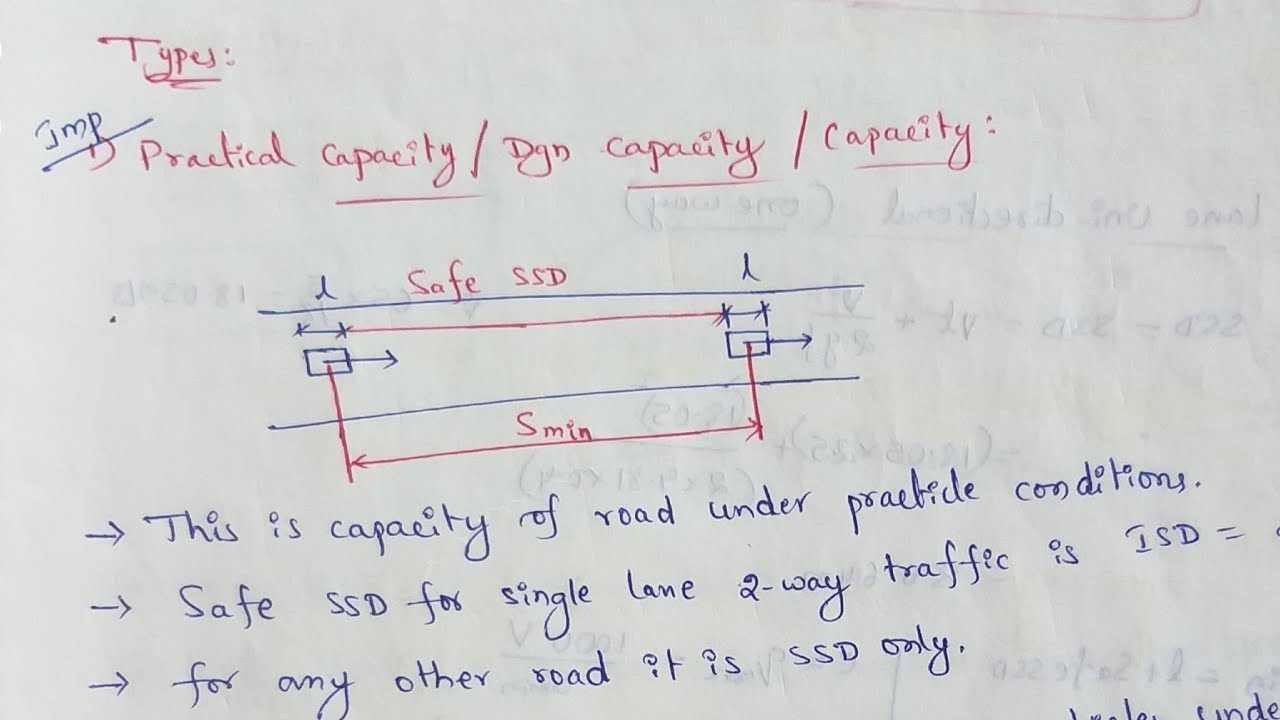 Types:
Imp
1) Practical capacity / Dgn capacity / Capacity:
l Safe SSD l
Smin
→ This is capacity of road under practicle conditions.
→ Safe SSD for single lane 2-way traffic is ISD =
→ for any other road it is SSD only.